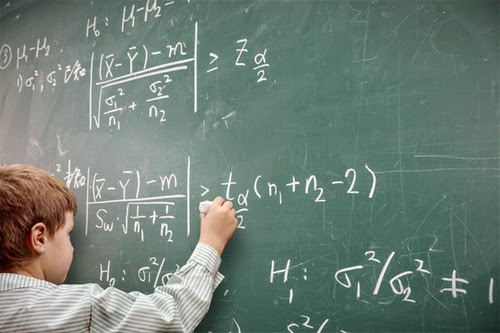 H₀ : μ₁-μ₂ =
③ μ₁-μ₂
i) σ₁², σ₂² 已知 | (X̄-Ȳ)-m / √(σ₁²/n₁ + σ₂²/n₂) | ≥ Z_{α/2}
| (X̄-Ȳ)-m / S_w·√(1/n₁ + 1/n₂) | ≥ t_{α/2} (n₁+n₂-2)
H₀ : σ₁²/σ₂ H₁ : σ₁²/σ₂² ≠ 1
S²/